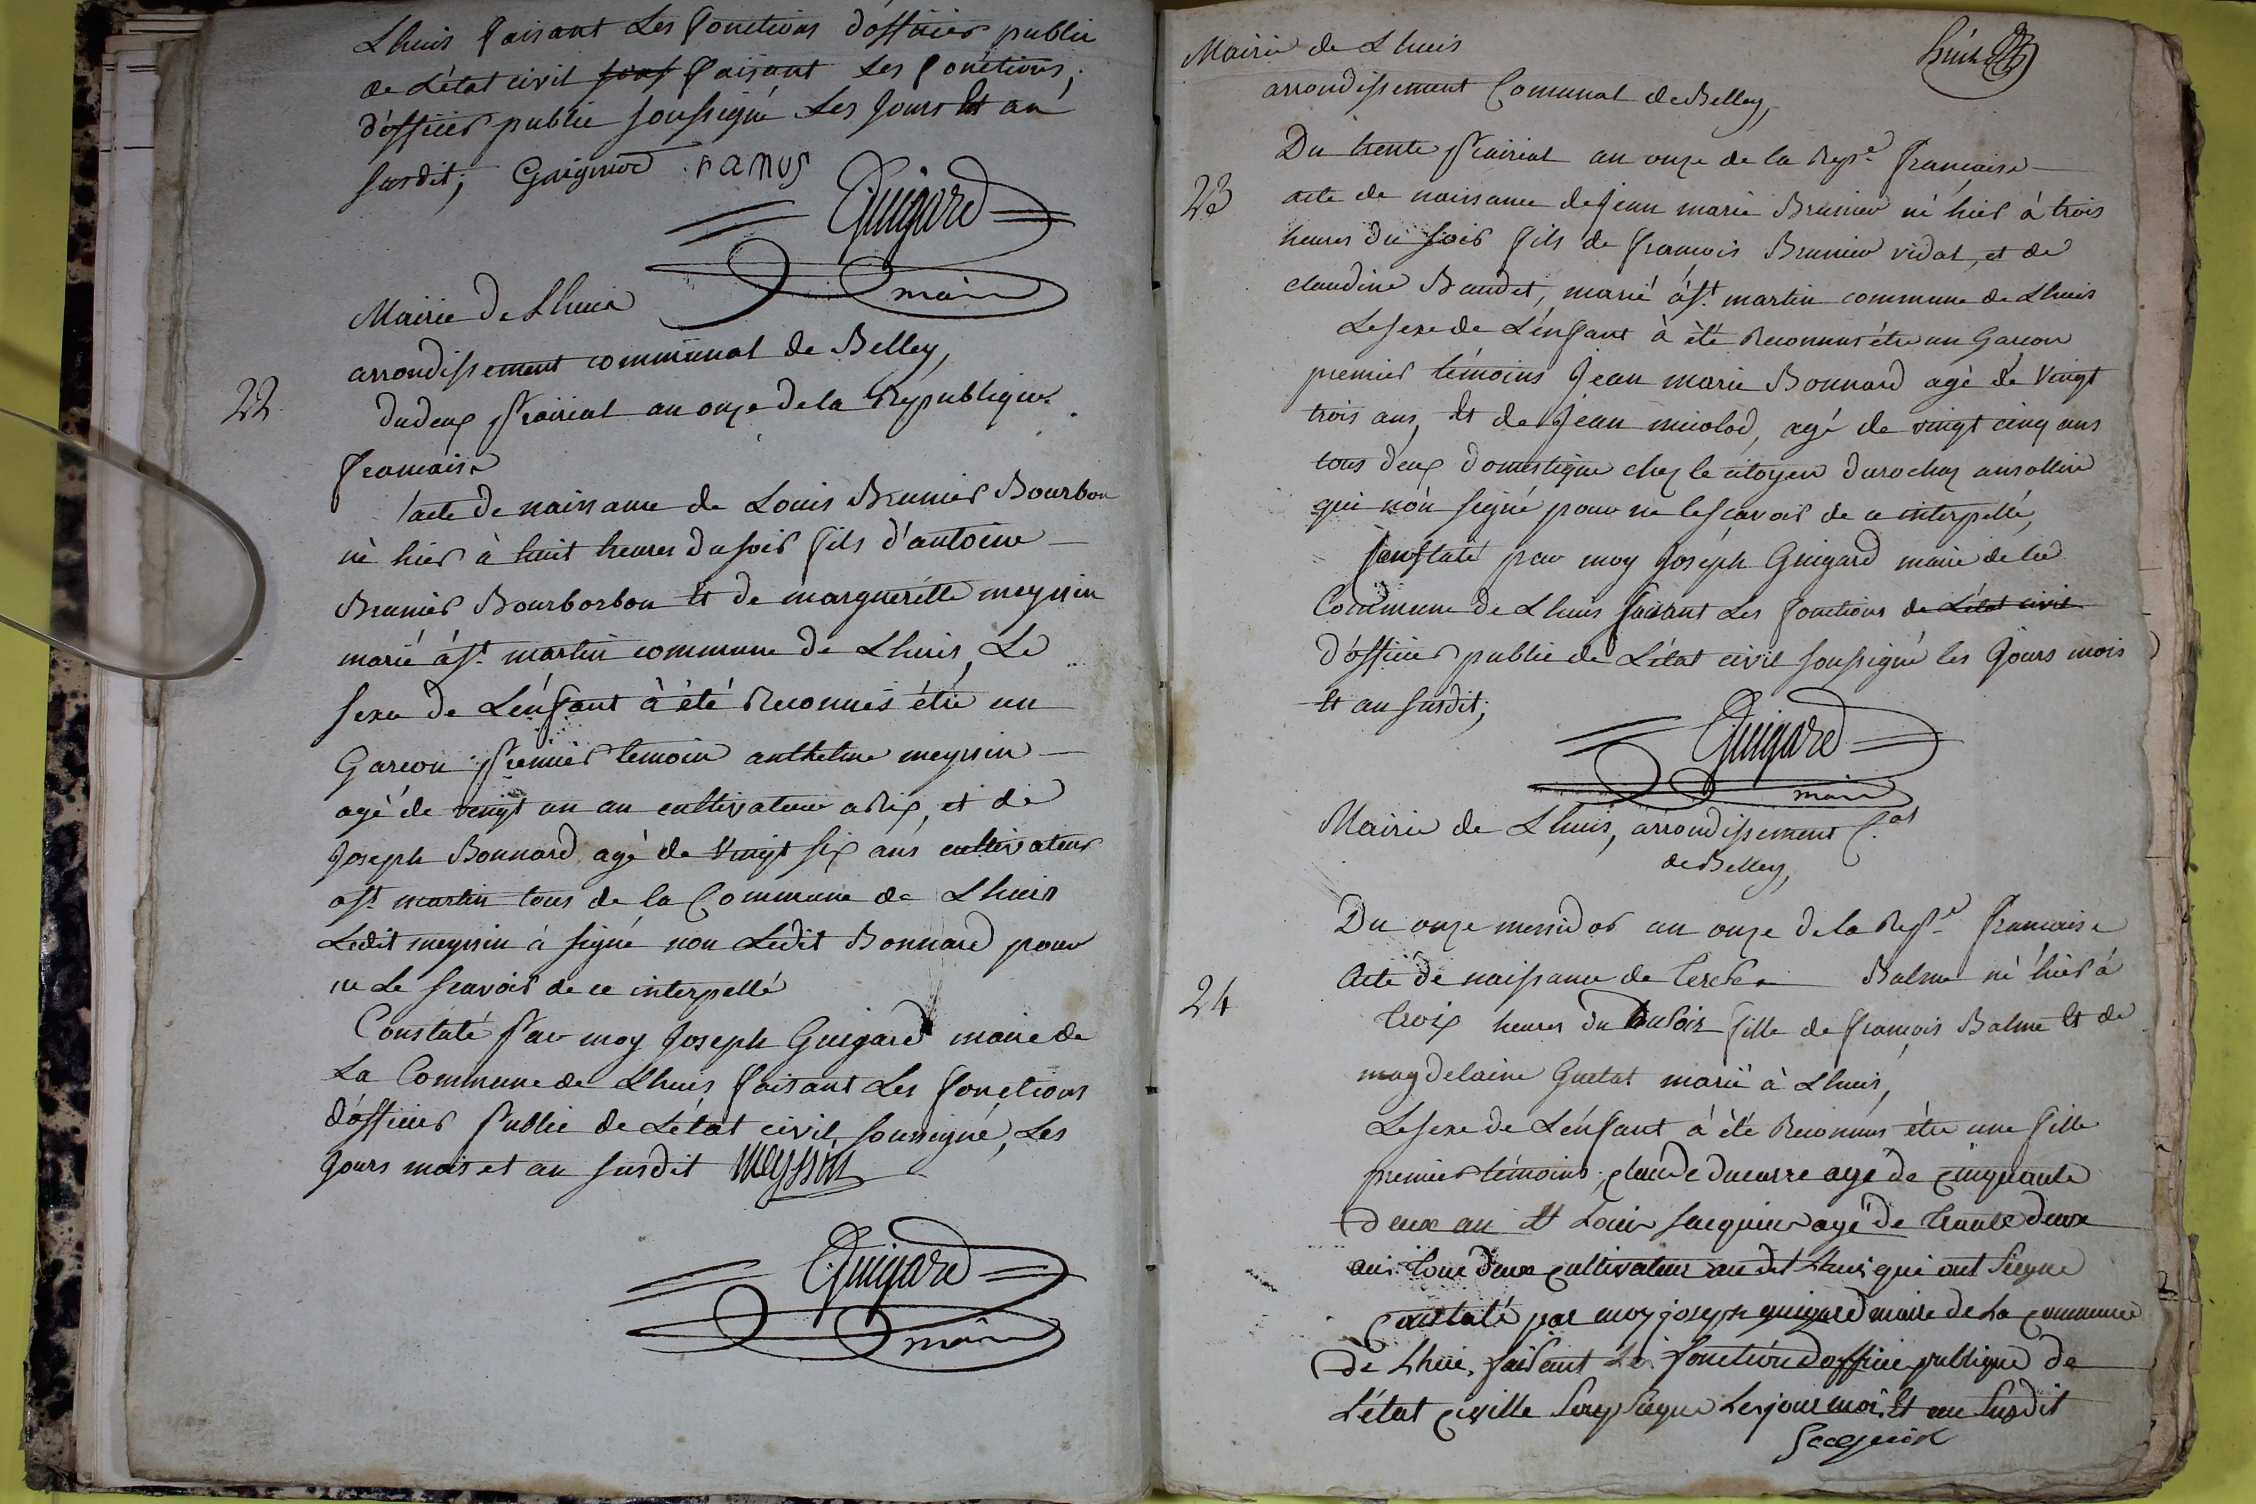 Lhuis faisant Les fonctions d'officier public
de L'état civil faisant Les fonctions,
d'officier public soussigné Les jours Et an
susdit, Guigard ramus
Guigard
maire
Mairie de Lhuis
arrondissement communal de Belley,
22
du deux Prairial an onze de la Republique
francaise
acte de naissance de Louis Brunier Bourbon
né hier à huit heures du soir fils d'antoine
Brunier Bourborbon Et de margueritte meyssin
marié à st martin commune de Lhuis, Le
sexe de L'énfant à été Reconnus étre un
Garcon Premier temoin anthelme meyssin
agé de vingt un an cultivateur a Rix, et de
Joseph Bonnard agé de vingt six ans cultivateur
a st martin tous de la Commune de Lhuis
Ledit meyssin à signé non Ledit Bonnard pour
ne Le scavoir de ce interpellé
Constaté Par moy Joseph Guigard maire de
La Commune de Lhuis faisant Les fonctions
d'officier Public de L'état civil, soussigné, Les
Jours mois et an susdit meyssin
Guigard
maire
Mairie de Lhuis
arrondissement Comunal de Belley,
23
Du trente Prairial an onze de la Repe francaise
acte de naissance de jean marie Brunier né hier à trois
heures du soir fils de francois Brunier vidal, et de
claudine Baudet, marié à st martin commune de Lhuis
Le sexe de L'énfant à été Reconnus étre un Garcon
premier témoins Jean marie Bonnard agé de vingt
trois ans, Et de Jean micolod, agé de vingt cinq ans
tous deux domestique chez le citoyen durochaz ansollin
qui n'on signé pour ne le scavoir de ce interpellé,
Constaté par moy Joséph Guigard maire de la
Commune de Lhuis faisant Les fonctions de L'état civil
d'officier public de L'état civil soussigné les Jours mois
Et an susdit;
Guigard
maire
Mairie de Lhuis, arrondissement C.al
de Belley,
Du onze messidor an onze de la Repe francaise
24
Acte de naissance de Balme né hier à
troix heures du du soir fille de françois Balme Et de
magdelaine Guetat marié à Lhuis,
Le sexe de L'énfant à été Reconnus étre une fille
premier témoins, claude ducarre agé de cinquante
deux an Et Louis Jacquier agé de trante deux
ans tous deux cultivateur au dit Lhuis qui ont Siegne
Constaté par moy joseph guigard maire de La commune
de Lhuis faisant Les fonction d'officie publique de
L'état civille Sousiegne Les jour mois Et an Susdit
Jacquier